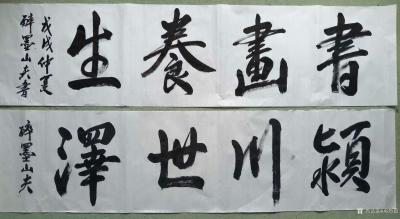 書畫養生
戊戌仲夏
醉墨山夫書
潁川世澤
醉墨山夫